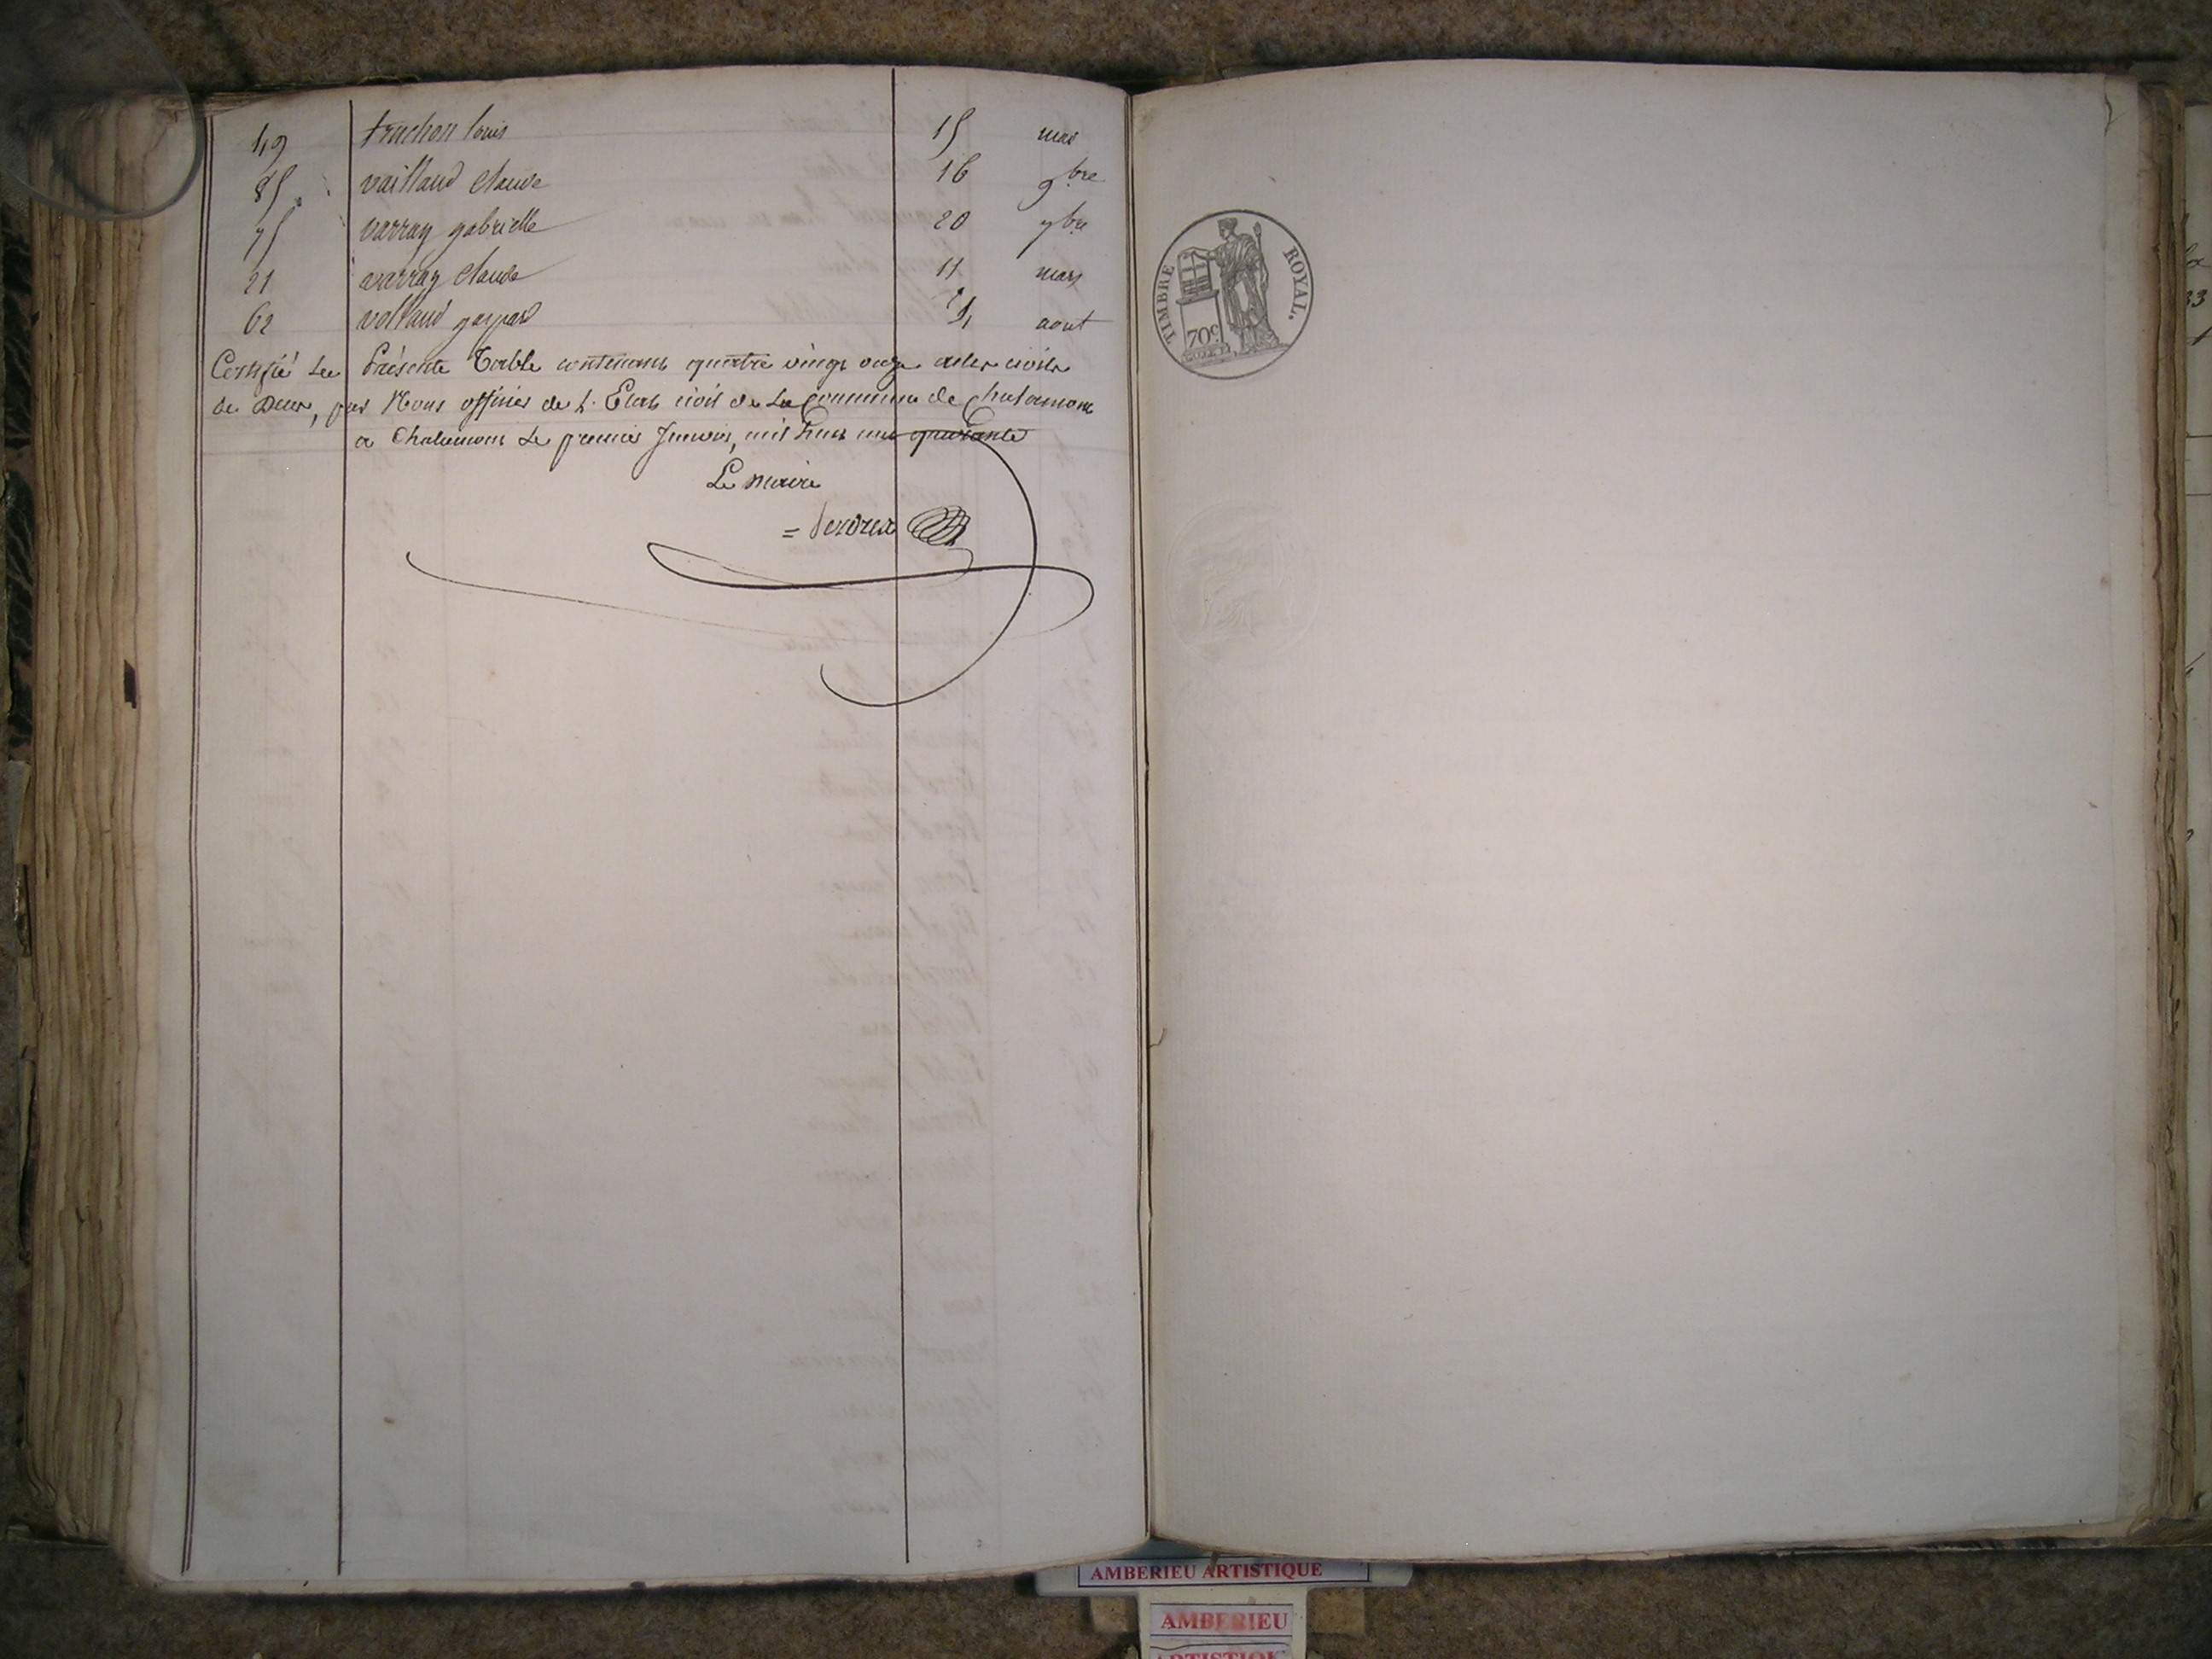 49 truchon louis 15 mai
85 vaillaud claude 16 9bre
75 varray gabrielle 20 7bre
21 varray claude 11 mars
62 vollaud gaspard aout
Certifié La Présente Table contenant quatre vingt onze actes civils
de Décès, par Nous officier de L'Etat civil de La Commune de Chalamont
a Chalamont Le premier Janvier, mil huit cent quarante
Le Maire
TIMBRE ROYAL.
70c
AMBERIEU ARTISTIQUE
AMBERIEU
ARTISTIQUE